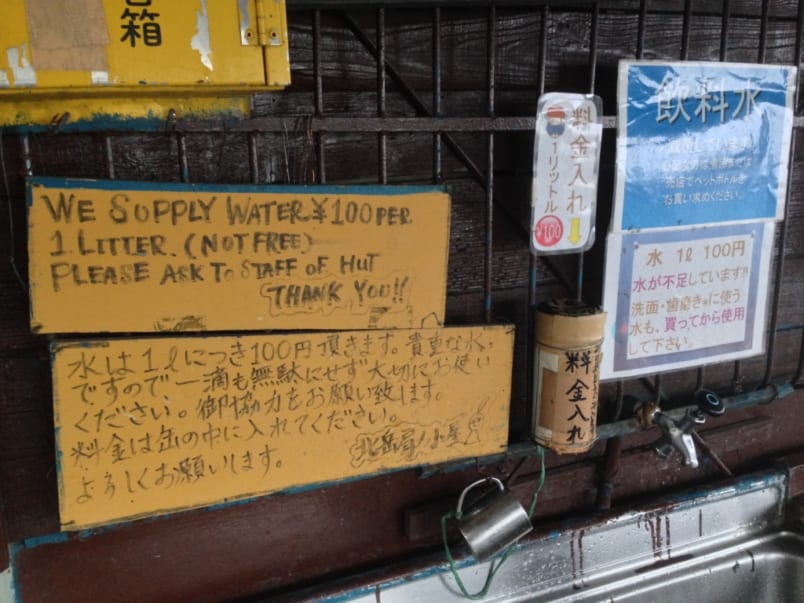 箱
WE SUPPLY WATER ¥100 PER
1 LITTER. (NOT FREE)
PLEASE ASK TO STAFF OF HUT
THANK YOU!!
水は1ℓにつき100円頂きます。貴重な水
ですので、一滴も無駄にせず大切にお使い
ください。御協力をお願い致します。
料金は缶の中に入れてください。
北岳肩ノ小屋
よろしくお願いします。
料金入れ
1リットル
¥100
料金入れ
飲料水
しています
売店でペットボトルを
お買い求めください。
水 1ℓ 100円
水が不足しています!!
洗面・歯磨き等に使う
水も、買ってから使用
して下さい。